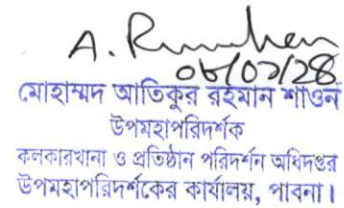 মোহাম্মদ আতিকুর রহমান শাওন
উপমহাপরিদর্শক
কলকারখানা ও প্রতিষ্ঠান পরিদর্শন অধিদপ্তর
উপমহাপরিদর্শকের কার্যালয়, পাবনা।